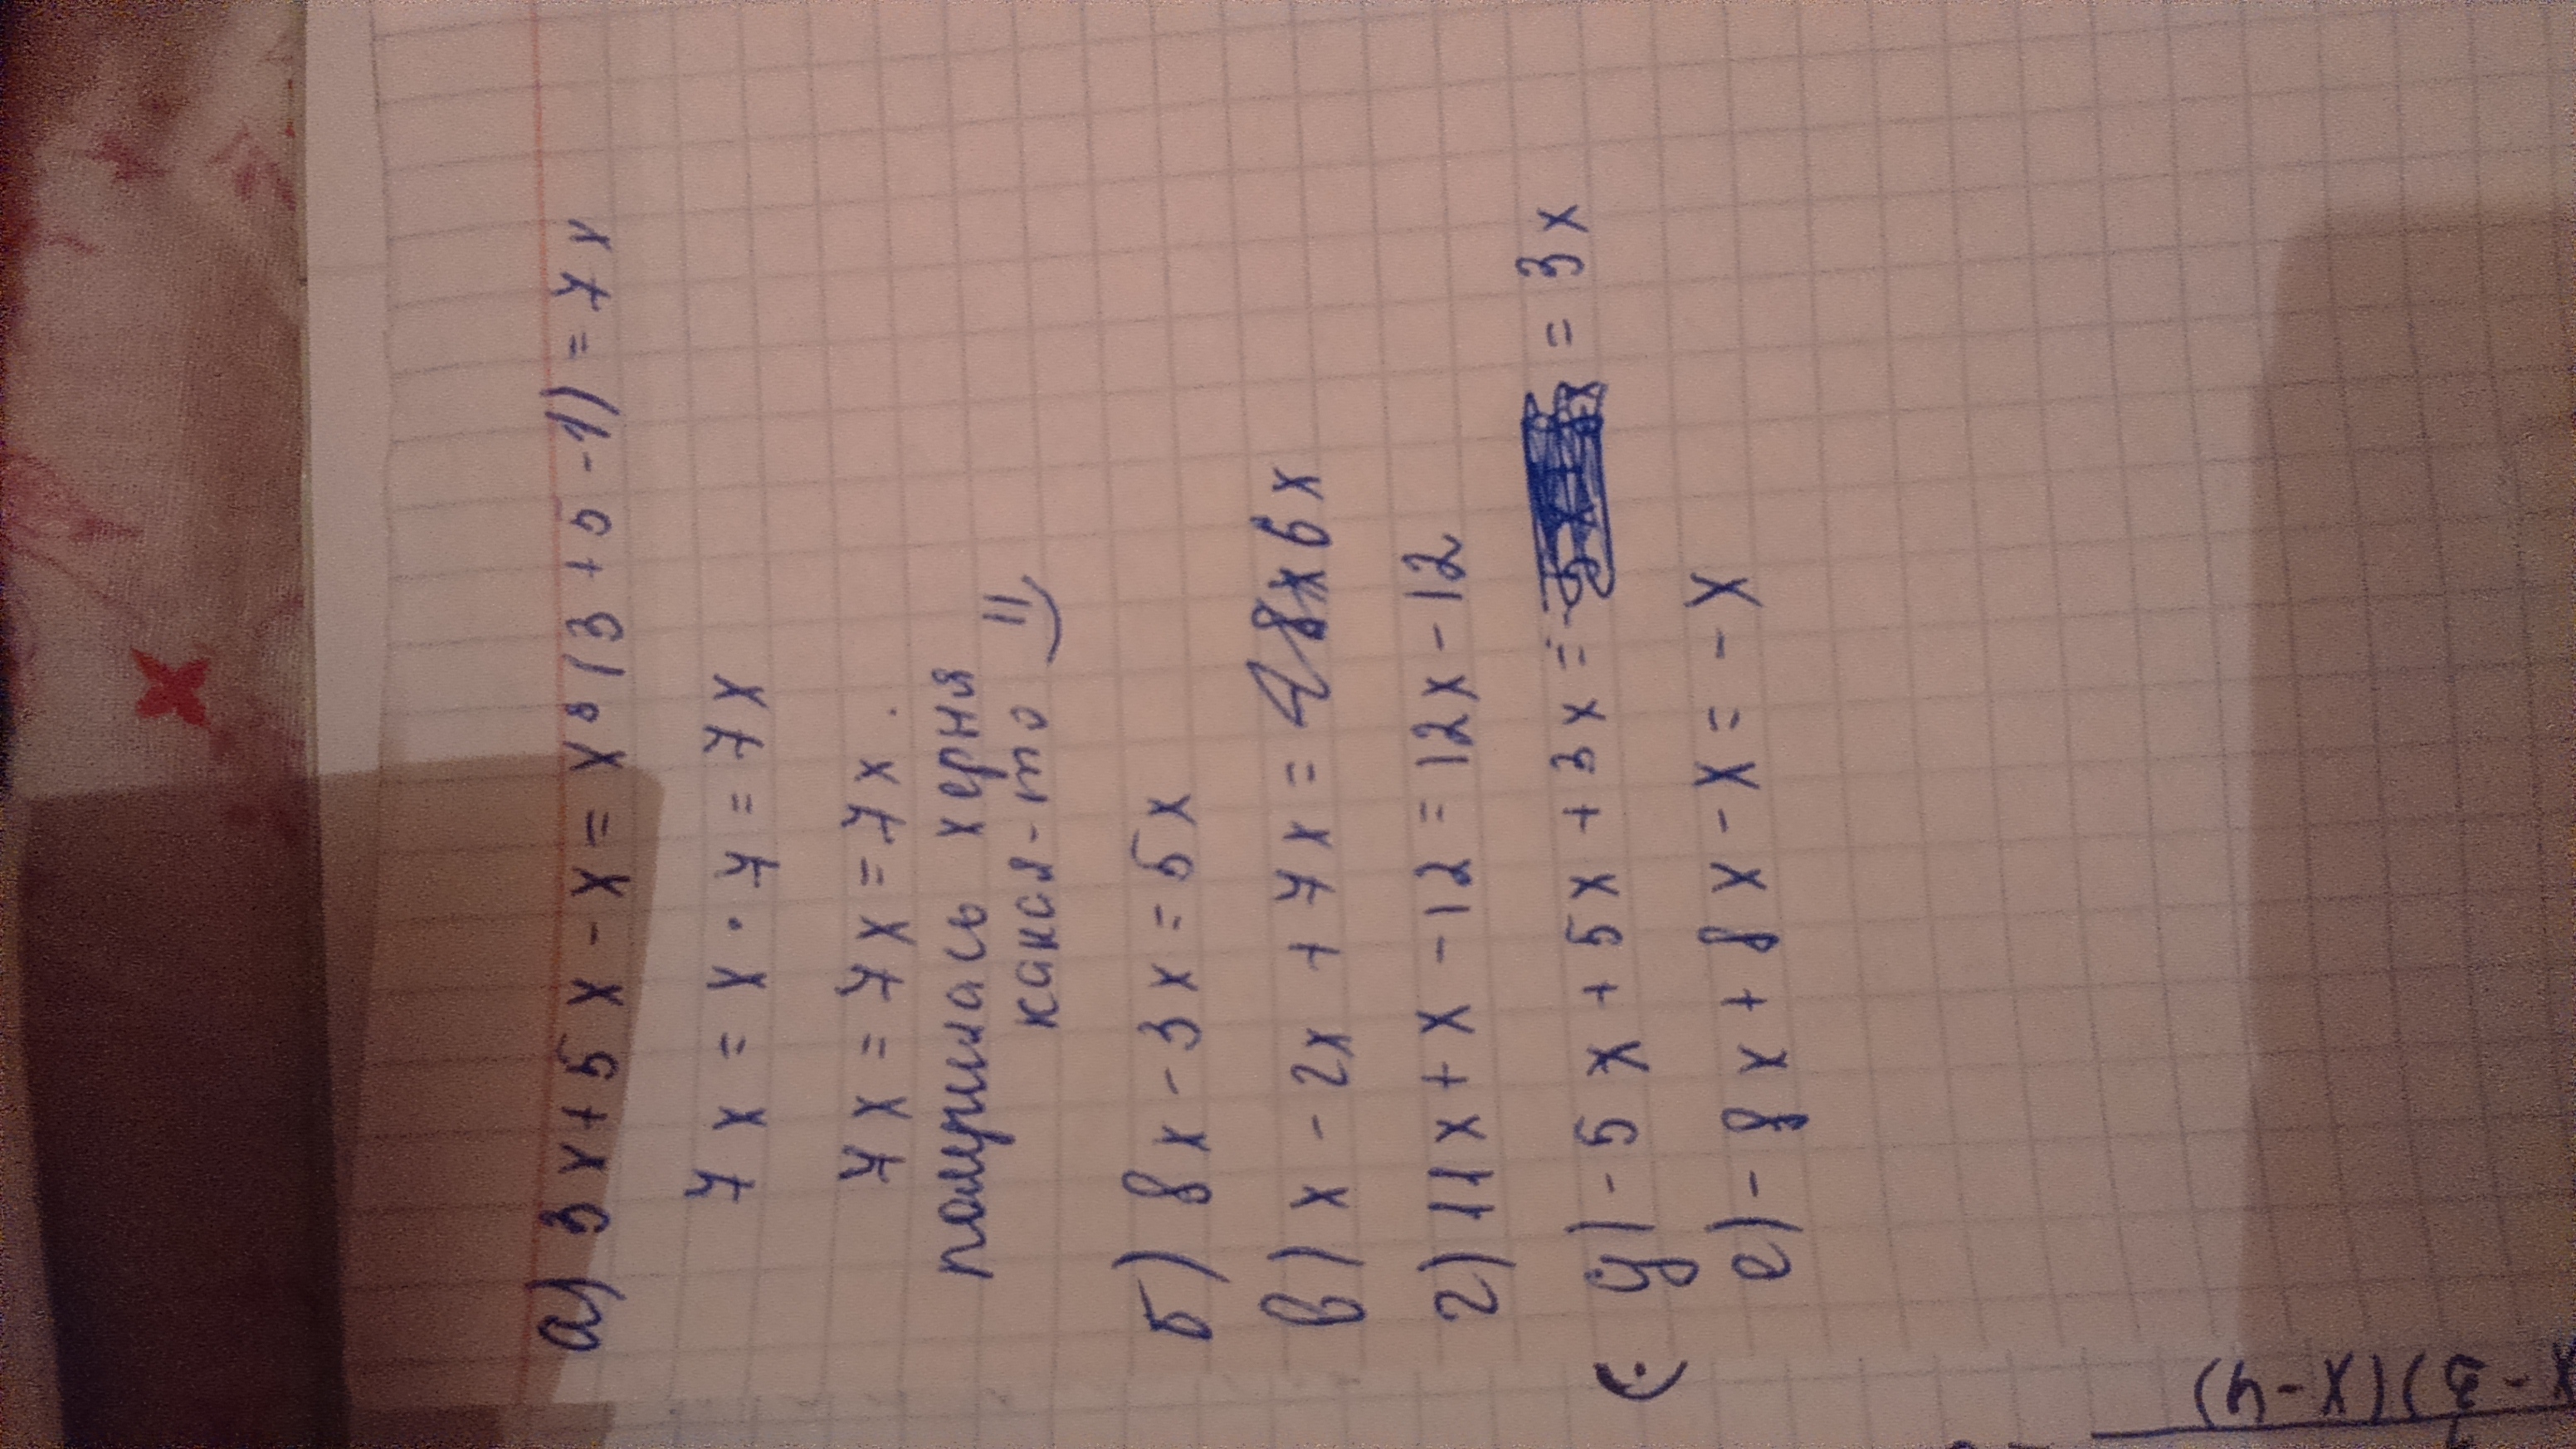 а) 3x+5x-x=x·(3+5-1)=7x
7x=x·7=7x
7x=7x=7x.
получилась херня
какая-то =)
б) 8x-3x=5x
в) x-2x+7x=6x
г) 11x+x-12=12x-12
д) -5x+5x+3x= =3x
е) -8x+8x-x=-x
x-3)(x-4)